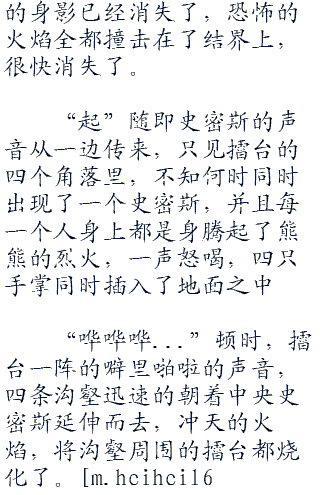 的身影已经消失了，恐怖的
火焰全都撞击在了结界上，
很快消失了。
“起”随即史密斯的声
音从一边传来，只见擂台的
四个角落里，不知何时同时
出现了一个史密斯，并且每
一个人身上都是身腾起了熊
熊的烈火，一声怒喝，四只
手掌同时插入了地面之中
“哗哗哗...”顿时，擂
台一阵的噼里啪啦的声音，
四条沟壑迅速的朝着中央史
密斯延伸而去，冲天的火
焰，将沟壑周围的擂台都烧
化了。[m.hcihcil6